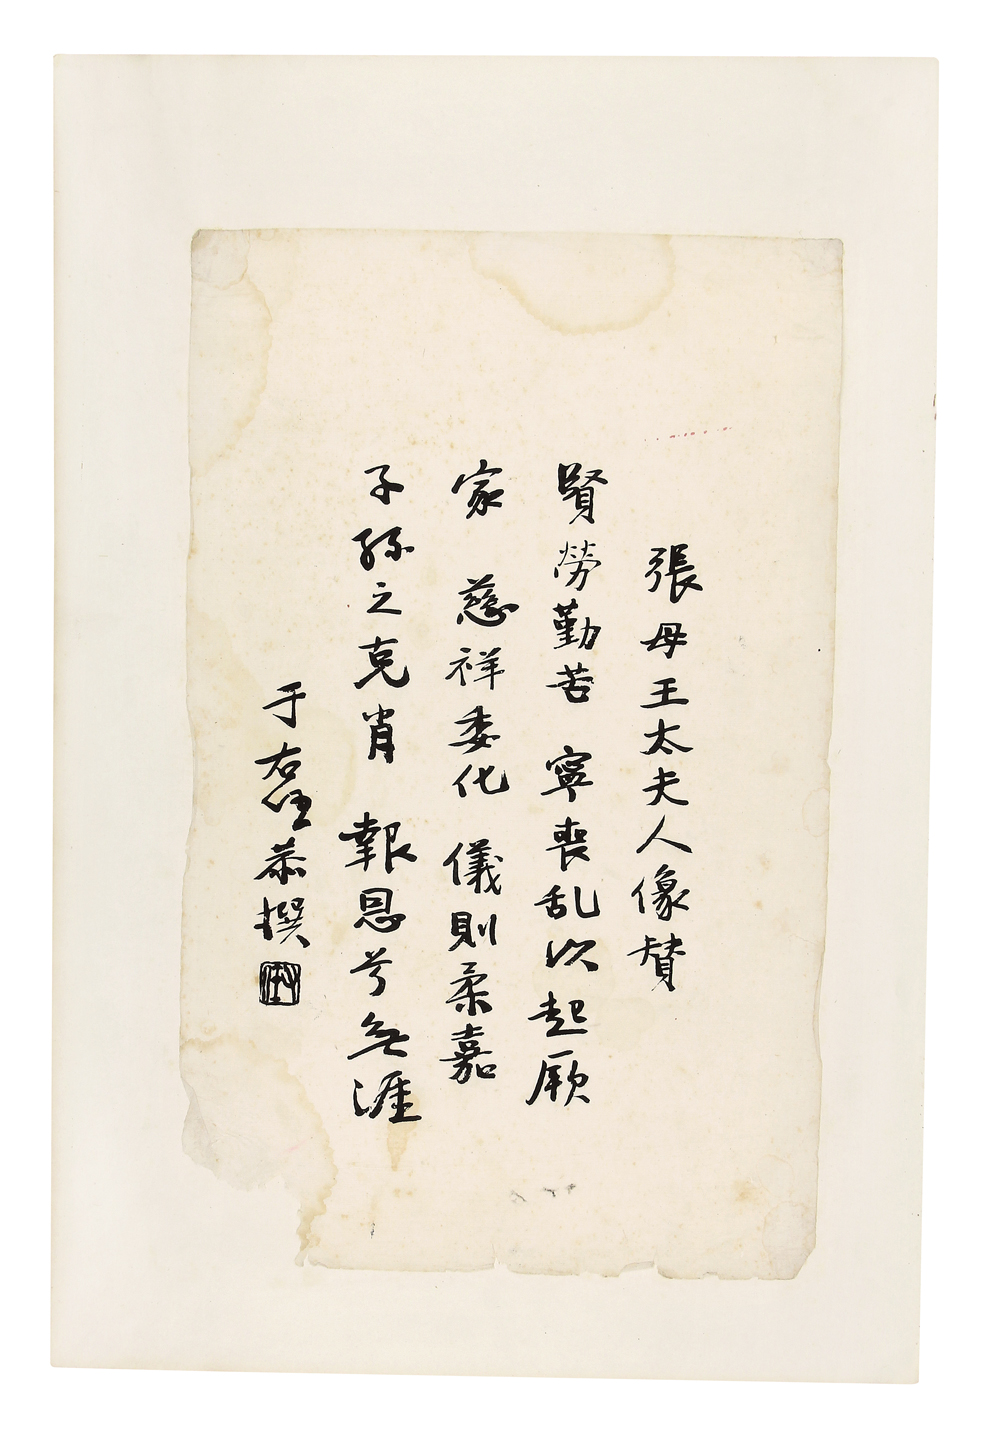 張母王太夫人像贊
賢勞勤苦 寧喪乱以起厥
家 慈祥委化 儀則柔嘉
子孫之克肖 報恩兮無涯
于右任恭撰